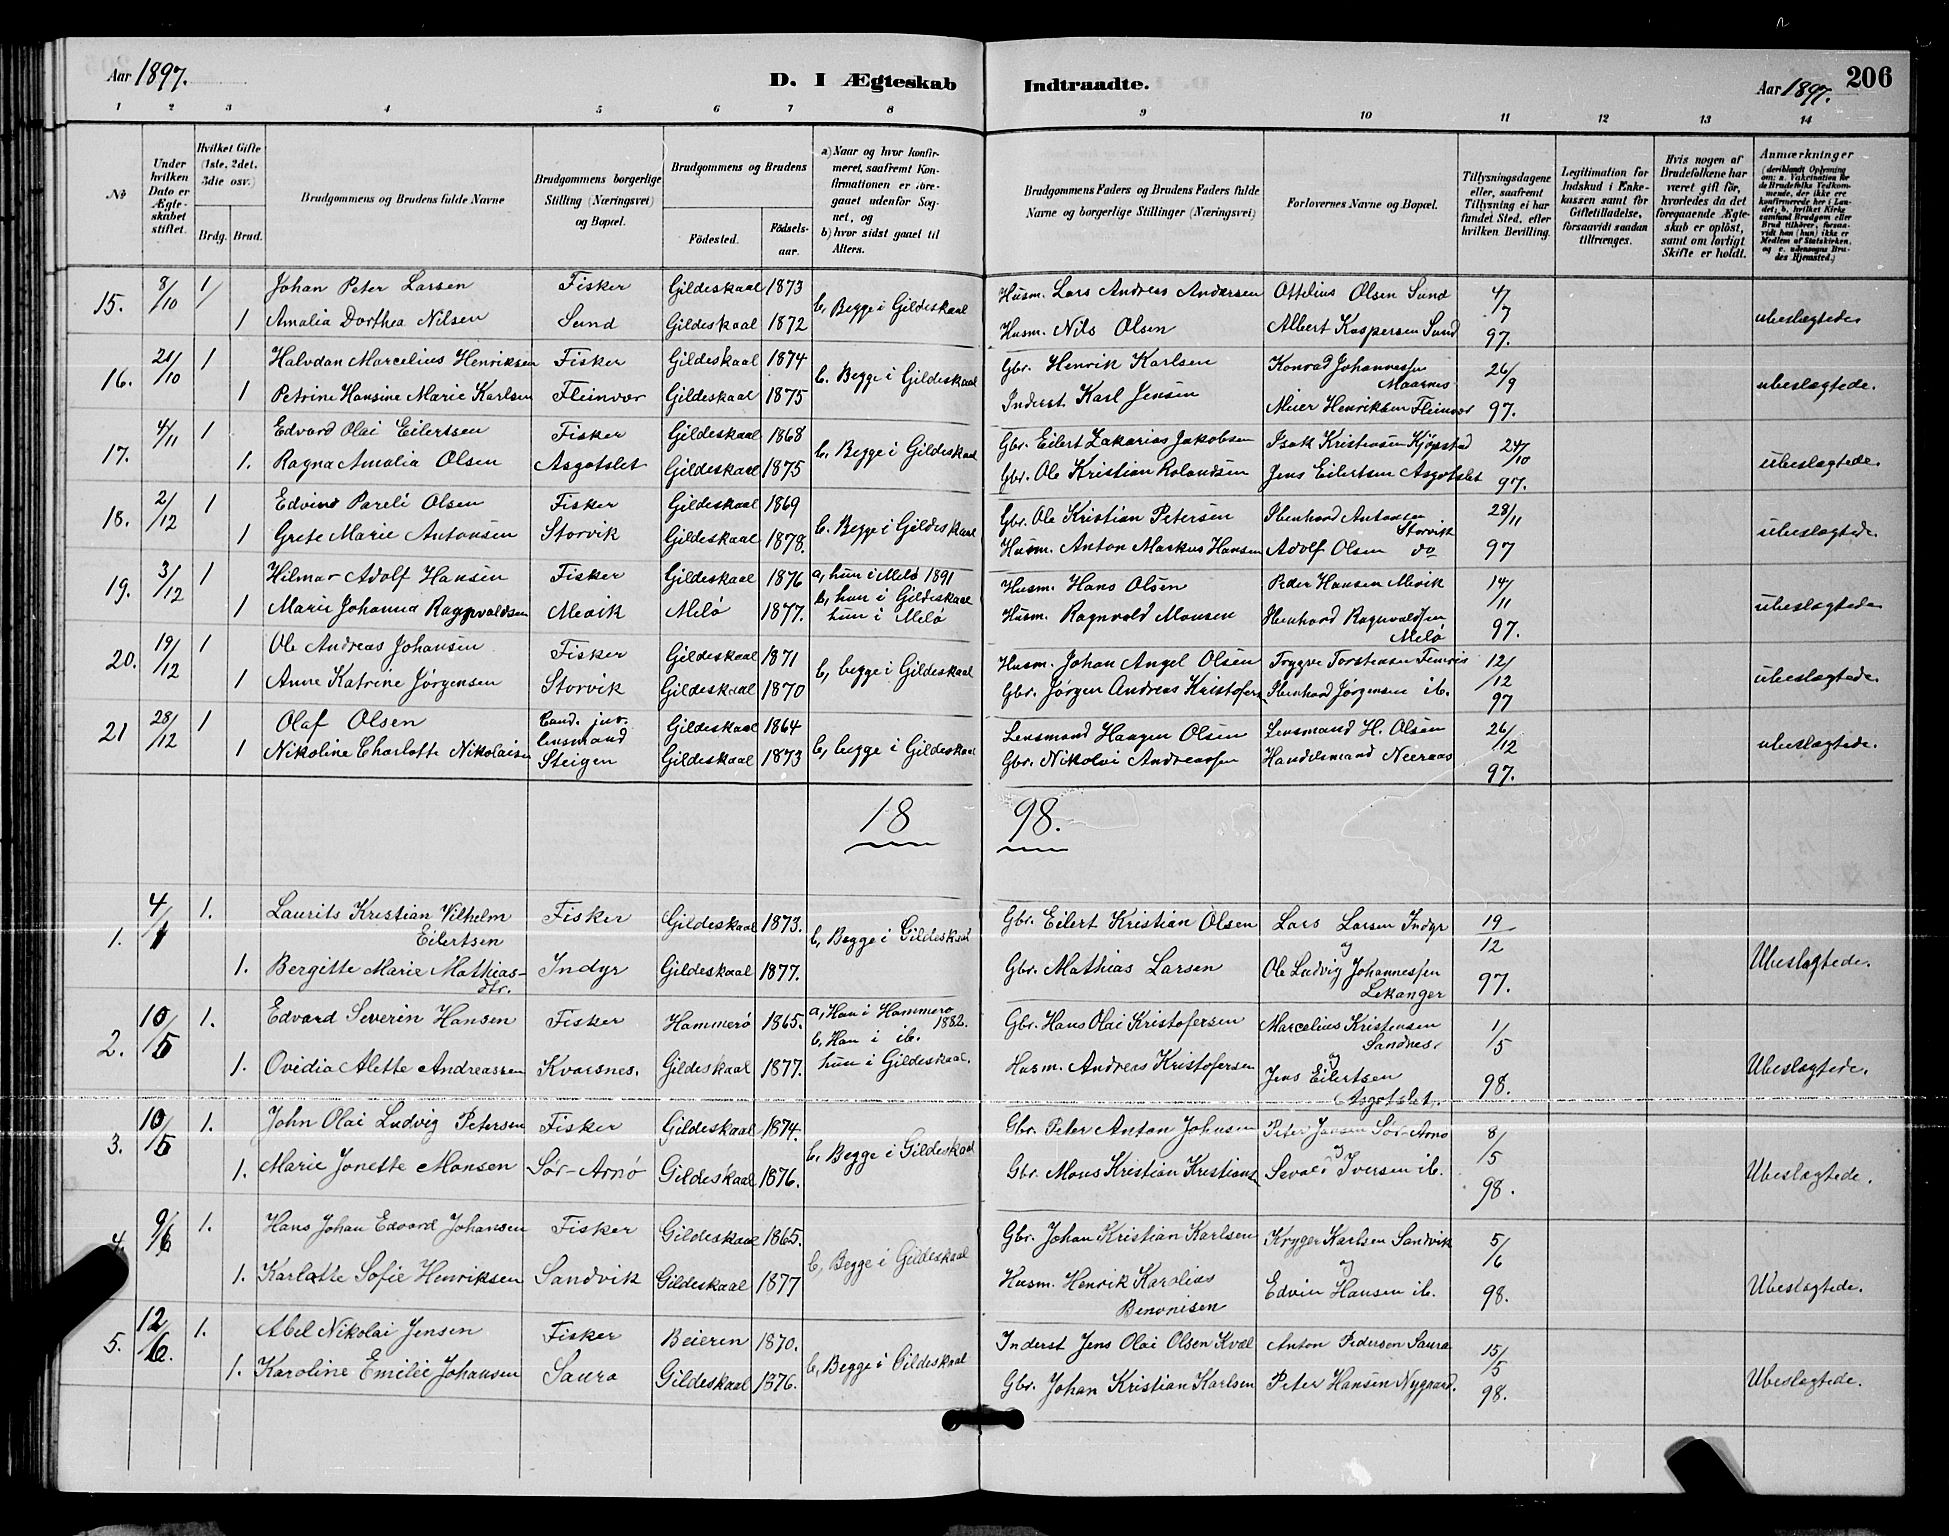 Aar 1897. D. I Ægteskab Indtraadte. Aar 1897. 206
1 2 3 4 5 6 7 8 9 10 11 12 13 14
No
Under hvilken Dato er Ægteskabet stiftet.
Hvilket Gifte (1ste, 2det, 3die osv.)
Brdg. Brud.
Brudgommens og Brudens fulde Navne
Brudgommens borgerlige Stilling (Næringsvei) og Bopæl.
Brudgommens og Brudens
Fødested. Fødselsaar.
a) Naar og hvor konfirmeret, saafremt Konfirmationen er foregaaet udenfor Sognet, og
b) hvor sidst gaaet til Alters.
Brudgommens Faders og Brudens Faders fulde Navne og borgerlige Stillinger (Næringsvei)
Forlovernes Navne og Bopæl.
Tillysningsdagene eller, saafremt Tillysning ei har fundet Sted, efter hvilken Bevilling.
Legitimation for Indskud i Enkekassen samt for Giftetilladelse, forsaavidt saadan tiltrænges.
Hvis nogen af Brudefolkene har været gift før, hvorledes da det foregaaende Ægteskab er opløst, samt om lovligt Skifte er holdt.
Anmærkninger (deriblandt Oplysning om: a. Vakcination for de Brudefolks Vedkommende, der ikke ere konfirmerede her i Landet; b. hvilket Kirkesamfund Brudgom eller Brud tilhører, forsaavidt han (hun) ikke er Medlem af Statskirken, og c. udensogns Brudes Hjemsted.)
15. 8/10 1 Johan Peter Larsen Fisker Gildeskaal 1873 b, Begge i Gildeskaal Husm. Lars Andreas Andersen Ottelius Olsen Sund 4/7
1 Amalia Dorthea Nilsen Sund Gildeskaal 1872 Husm. Nils Olsen Albert Kaspersen Sund 97. ubeslægtede
16. 21/10 1 Halvdan Marcelius Henriksen Fisker Gildeskaal 1874 b. Begge i Gildeskaal Gbr. Henrik Karlsen Konrad Johannessen Maarnes 26/9
1 Petrine Hansine Marie Karlsen Fleinvær Gildeskaal 1875 Inderst Karl Jensen Meier Henriksen Fleinvær 97. ubeslægtede.
17. 4/11 1 Edvard Olai Eilertsen Fisker Gildeskaal 1868 b, Begge i Gildeskaal Gbr. Eilert Zakarias Jakobsen Isak Kristensen Kjøpstad 24/10
1. Ragna Amalia Olsen Asgotslet Gildeskaal 1875 Gbr. Ole Kristian Rolandsen Jens Eilertsen Asgotslet 97. ubeslægtede.
18. 2/12 1 Edvind Pareli Olsen Fisker Gildeskaal 1869 b. Begge i Gildeskaal Gbr. Ole Kristian Petersen Ibenhard Antonsen Storvik 28/11
1 Grete Marie Antonsen Storvik Gildeskaal 1878. Husm. Anton Markus Hansen Adolf Olsen do 97 ubeslægtede
19. 3/12 1 Hilmar Adolf Hansen Fisker Gildeskaal 1876 a, hun i Melø 1891 Husm. Hans Olsen Peder Hansen Mevik 14/11
b, hun i Gildeskaal
1 Marie Johanna Ragnvaldsen Mevik Melø 1877. hun i Melø Husm. Ragnvald Monsen Ibenhard Ragnvaldsen Melø 97. ubeslægtede
20. 19/12 1 Ole Andreas Johansen Fisker Gildeskaal 1871 b, begge i Gildeskaal Husm. Johan Angel Olsen Trygve Torstensen 12/12
1 Anne Katrine Jørgensen Storvik Gildeskaal 1870 Gbr. Jørgen Andreas Kristofers Ibenhard Jørgensen ib. 97 ubeslægtede.
21 28/12 1 Olaf Olsen Cand. jur. Lensmand Gildeskaal 1864 b, begge i Gildeskaal Lensmand Haagen Olsen Lensmand H. Olsen 26/12
1 Nikoline Charlotte Nikolaisen Steigen Gildeskaal 1873 Gbr. Nikolai Andreassen Handelsmand Neeraas 97. ubeslægtede.
18 98.
1. 4/1 1. Laurits Kristian Vilhelm Eilertsen Fisker Gildeskaal 1873. b, Begge i Gildeskaal Gbr. Eilert Kristian Olsen Lars Larsen Indyr 19/12
og
1. Bergitte Marie Mathiasdtr. Indyr Gildeskaal 1877. Gbr. Mathias Larsen Ole Ludvig Johannessen Lekanger 97. Ubeslægtede.
2. 10/5 1. Edvard Severin Hansen Fisker Hammerø 1865. a, Han i Hammerø 1882. Gbr. Hans Olai Kristofersen Marcelius Kristensen Sandnes. 1/5
b. Han i ib. og
1. Ovidia Alette Andreassen Kvarsnes. Gildeskaal 1877. hun i Gildeskaal. Husm. Andreas Kristofersen Jens Eilertsen Asgotslet. 98. Ubeslægtede.
3. 10/5 1. John Olai Ludvig Petersen Fisker Gildeskaal 1874. b. Begge i Gildeskaal Gbr. Peter Anton Johnsen Peter Jansen Sør-Arnø 8/5
og
1. Marie Jonette Monsen Sør-Arnø Gildeskaal 1876. Gbr. Mons Kristian Kristians Sevald Iversen ib. 98. Ubeslægtede.
4. 9/6 1. Hans Johan Edvard Johansen Fisker Gildeskaal 1865. b, Begge i Gildeskaal Gbr. Johan Kristian Karlsen Kryger Karlsen Sandvik 5/6
og
1. Karlotte Sofie Henriksen Sandvik Gildeskaal 1877 Husm. Henrik Karolius Benonisen Edvin Hansen ib. 98. Ubeslægtede.
5. 12/6. 1. Abel Nikolai Jensen Fisker Beieren 1870. b, Begge i Gildeskaal Inderst Jens Olai Olsen Kvæl Anton Pederson Saura 15/5
1. Karoline Emilie Johansen Saura Gildeskaal 1876. Gbr. Johan Kristian Karlsen Peter Hansen Nygaard. 98. Ubeslægtede.